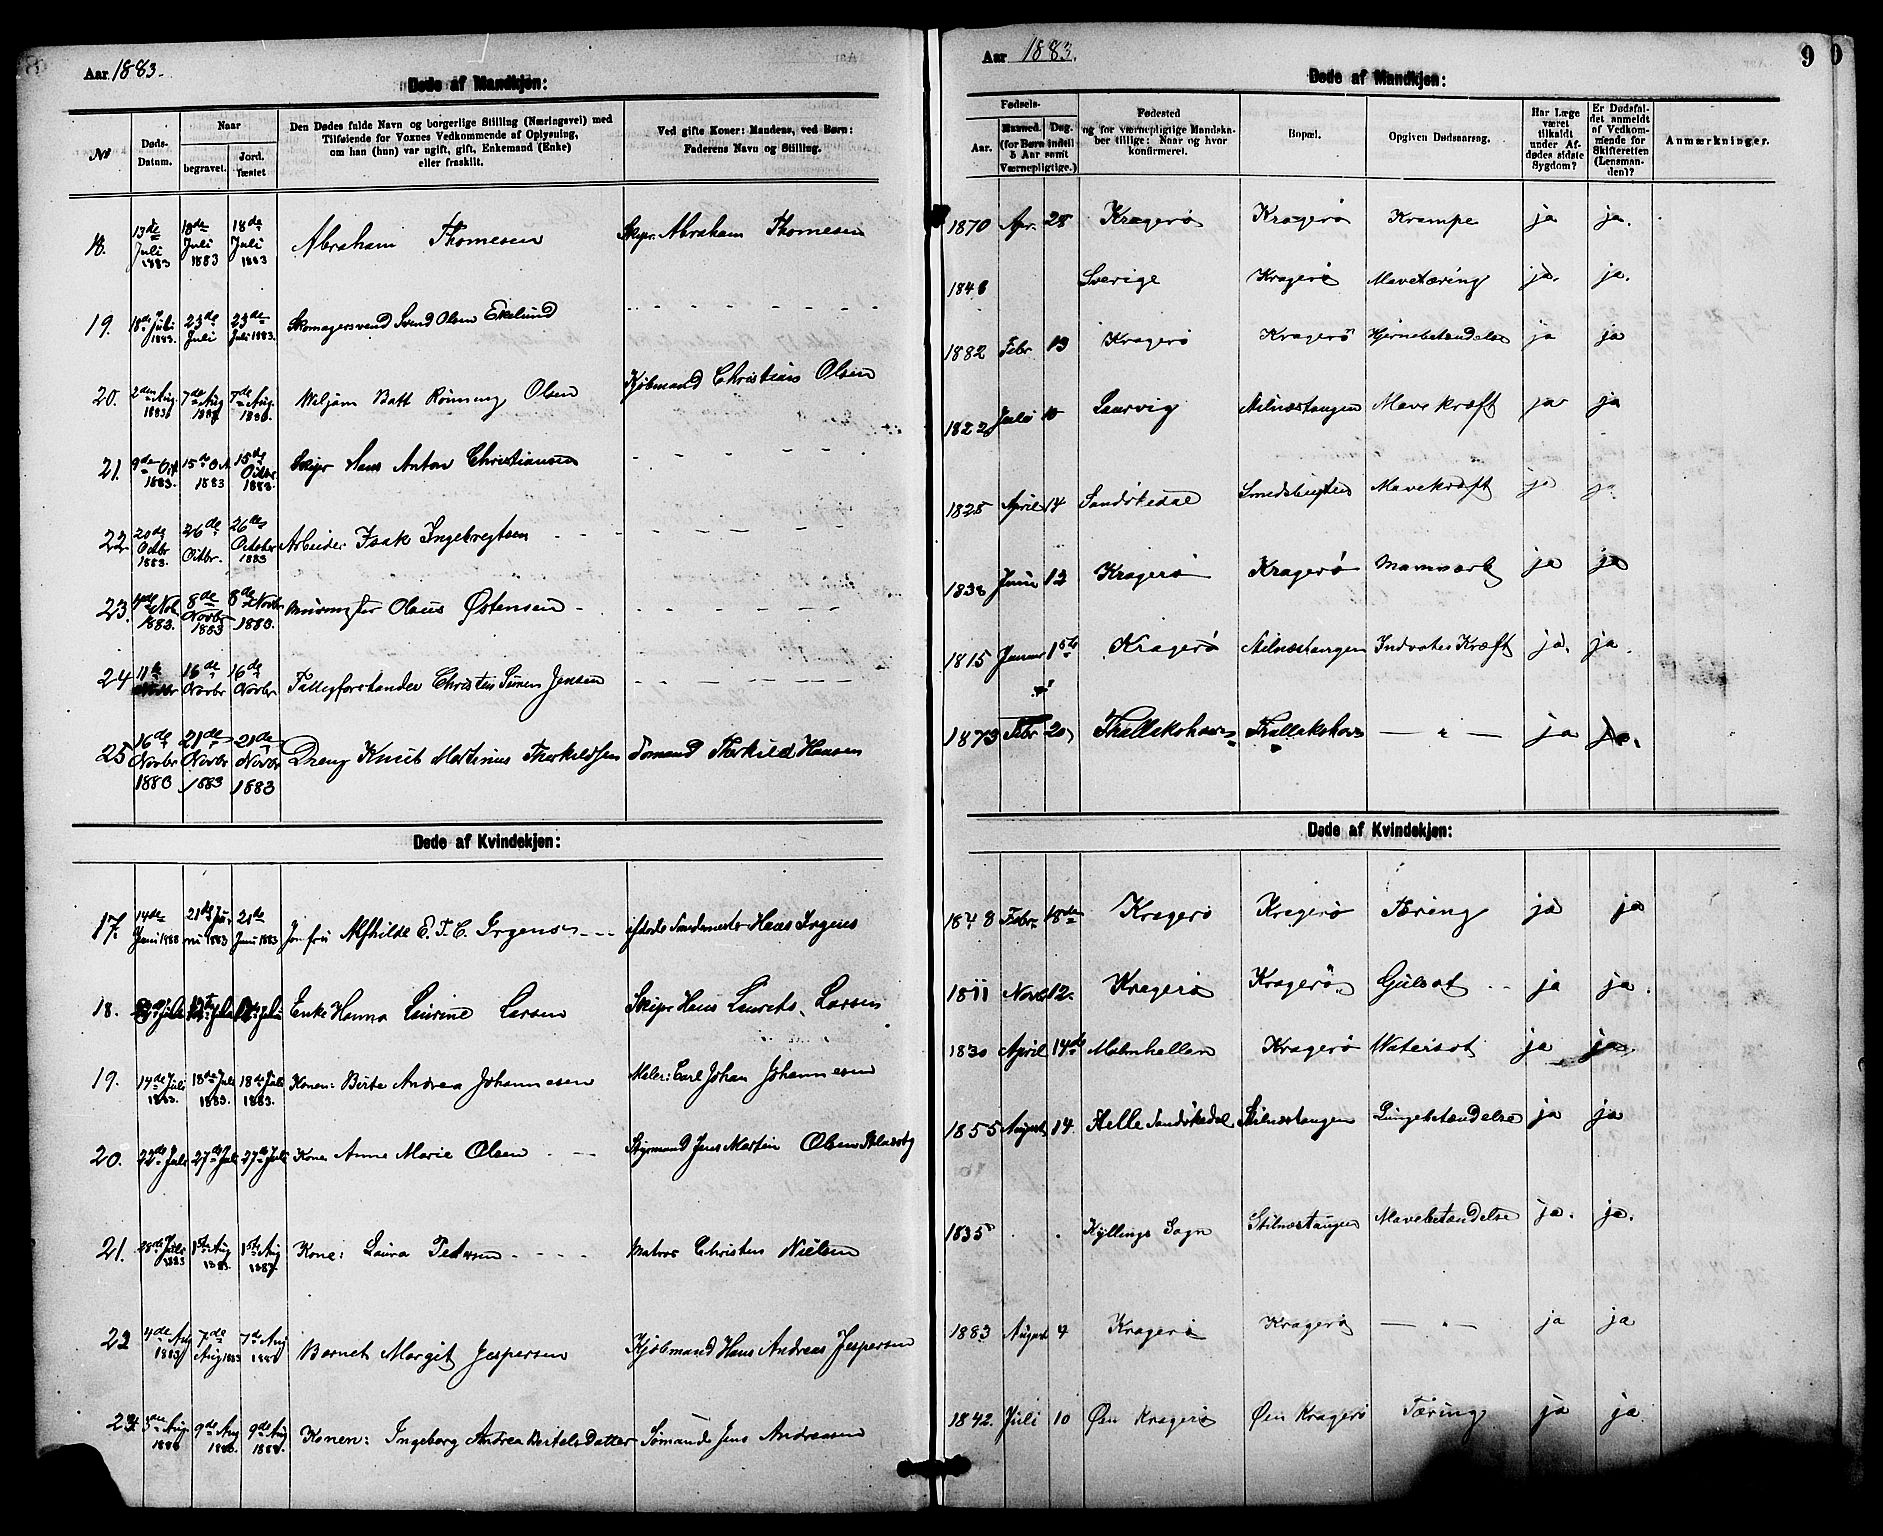 Aar 1883.
Døde af Mandkjøn:
No
Døds-Datum.
Naar
begravet.
Jord. fæstet
Den Dødes fulde Navn og borgerlige Stilling (Næringsvei) med
Tilføiende for Voxnes Vedkommende af Oplysning,
om han (hun) var ugift, gift, Enkemand (Enke)
eller fraskilt.
Ved gifte Koner: Mandens, ved Børn:
Faderens Navn og Stilling.
18. 13de Juli 1883 18de Juli 1883 18de Juli 1883 Abraham Thomesen Skipr. Abraham Thomesen
19. 18de Juli 1883. 23de Juli 23de Juli 1883. Skomagersvend Svend Olsen Ekelund - - - - -
20. 2den Aug. 1883 7de Aug 1883 7de Aug. 1883. Wiljam Batt Rönning Olsen Kjöbmand Christian Olsen
21. 9de Oct. 1883. 15de Oct 1883 15de Octbr 1883. Skipr Hans Anton Christiansen - - - - -
22 20de Octbr 1883. 26de Octbr. 26de October 1883 Arbeider Isak Ingebregtsen - - - - -
23. Nobr 1883. 8de Novbr 1883 8de Novbr 1883. Olaus Østensen - - - - -
24 11te Novbr 16de Novbr 16de Novbr Christen Simon Jensen - - - - -
25 16de Novbr 1883 21de Novbr 1883 21de Novbr 1883 Dreng Knut Martinius Therkildsen Sömand Therkild Hansen
Døde af Kvindekjøn:
17. 14de Juni 1883 21de Juni 1883 21de Juni 1883 Jomfru Alfhilde E. T. C. Irgens - - - afdøde Hans Irgens
18. Juli Juli Juli Enke Hanna Laurine Larsen Skipr Hans Laurits Larsen
19. 14de Juli 1883. 18de Juli 1883. 18de Juli 1883. Konen: Birte Andrea Johannesen Maler: Carl Johan Johannesen
20. 22de Juli 27de Juli 27de Juli Kone Anne Marie Olsen - - Styrmand Jens Martin Olsen
21. 28de Juli 1883 1ste Aug 1883. 1ste Aug 1883. Kone: Laura Petersen - - - - Matros Christen Nielsen
22 4de Aug 1883 7de Aug 1883 7de Aug 1883 Barnet Margit Jespersen Kjöbmand Hans Andreas Jespersen
23. Aug. 1883 9de Aug 1883. 9de Aug 1883. Konen: Ingeborg Andrea Bertels Datter Sömand Jens Andreasen
Aar 1883.
9
0
Døde af Mandkjøn:
Fødsels-
Aar.
Maaned. Dag.
(for Børn indtil
5 Aar samt
Værnepligtige.)
Fødested
og for værnepligtige Mandska-
ber tillige: Naar og hvor
konfirmeret.
Bopæl.
Opgiven Dødsaarsag.
Har Læge
været
tilkaldt
under Af-
dødes sidste
Sygdom?
Er Dødsfal-
det anmeldt
af Vedkom-
mende for
Skifteretten
(Lensman-
den)?
Anmærkninger.
1870 Apr. 28 Kragerö Kragerö Krampe ja ja.
1846 Sverige Kragerö Mavetæring ja. ja.
1882 Febr 13 Kragerö Kragerö Hjernebetændelse ja ja
1822 Juli 10 Laurvig Stilnæstangen Mavekræft ja ja
1825 April 14 Sandökedal Smedsbugten Mavekræft ja ja
1838 Juni 12 Kragerö Kragerö ja ja
1815 Januar Kragerö Stilnæstangen Indvotes Kræft ja. ja.
1873 Febr 20 — " — ja ja.
Døde af Kvindekjøn:
1848 Febr. 18de Kragerö Kragerö Tæring ja ja
1811 Novb 12. Kragerö Kragerö Gulsot - - ja ja.
1830 April 14de Malmhellen Kragerö Watersot ja ja
1855 August 14. Helle Sandökedal Stilnæstangen Lungebetændelse ja ja
1835 . . Kyllings Sogn Stilnæstangen Mavebetændelse ja. ja.
1883 August 4 Kragerö Kragerö — " — ja ja
1842. Juli 10 Øen Kragerö Øen Kragerö Tæring ja ja